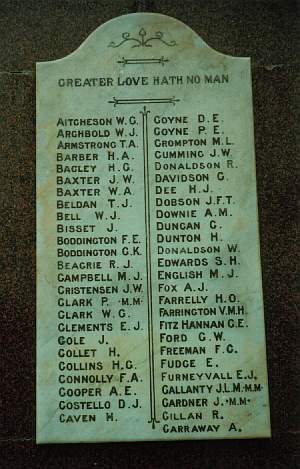 GREATER LOVE HATH NO MAN
AITCHESON W.G.
ARCHBOLD W.J.
ARMSTRONG T.A.
BARBER H.A.
BAGLEY H.G.
BAXTER J.W.
BAXTER W.A.
BELDAN T.J.
BELL W.J.
BISSET J.
BODDINGTON F.E.
BODDINGTON G.K.
BEAGRIE R.J.
CAMPBELL M.J.
CRISTENSEN J.W.
CLARK P. M.M.
CLARK W.G.
CLEMENTS E.J.
COLE J.
COLLET H.
COLLINS H.G.
CONNOLLY F.A.
COOPER A.E.
COSTELLO D.J.
CAVEN H.
COYNE D.E.
COYNE P.E.
CROMPTON M.L.
CUMMING J.W.
DONALDSON R.
DAVIDSON G.
DEE H.J.
DOBSON J.F.T.
DOWNIE A.M.
DUNCAN G.
DUNTON H.
DONALDSON W.
EDWARDS S.H.
ENGLISH M.J.
FOX A.J.
FARRELLY H.O.
FARRINGTON V.M.H.
FITZ HANNAN G.E.
FORD G.W.
FREEMAN F.G.
FUDGE E.
FURNEYVALL E.J.
GALLANTY J.L.M. M.M.
GARDNER J. M.M.
GILLAN R.
GARRAWAY A.